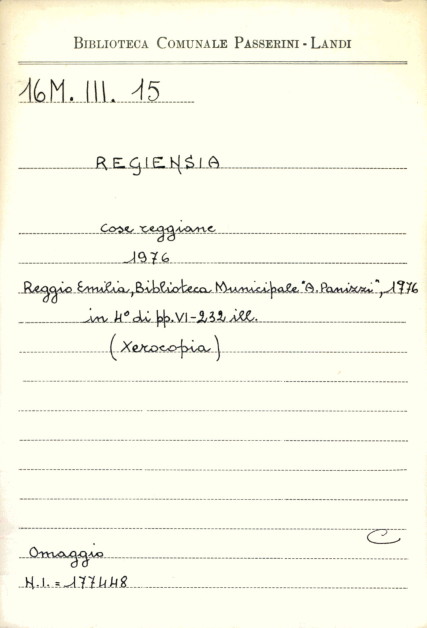 BIBLIOTECA COMUNALE PASSERINI - LANDI
16M. III. 15
REGIENSIA
Cose reggiane
1976
Reggio Emilia, Biblioteca Municipale "A. Panizzi", 1976
in 4° di pp. VI-232 ill.
(Xerocopia)
C
Omaggio
N.I. = 177448